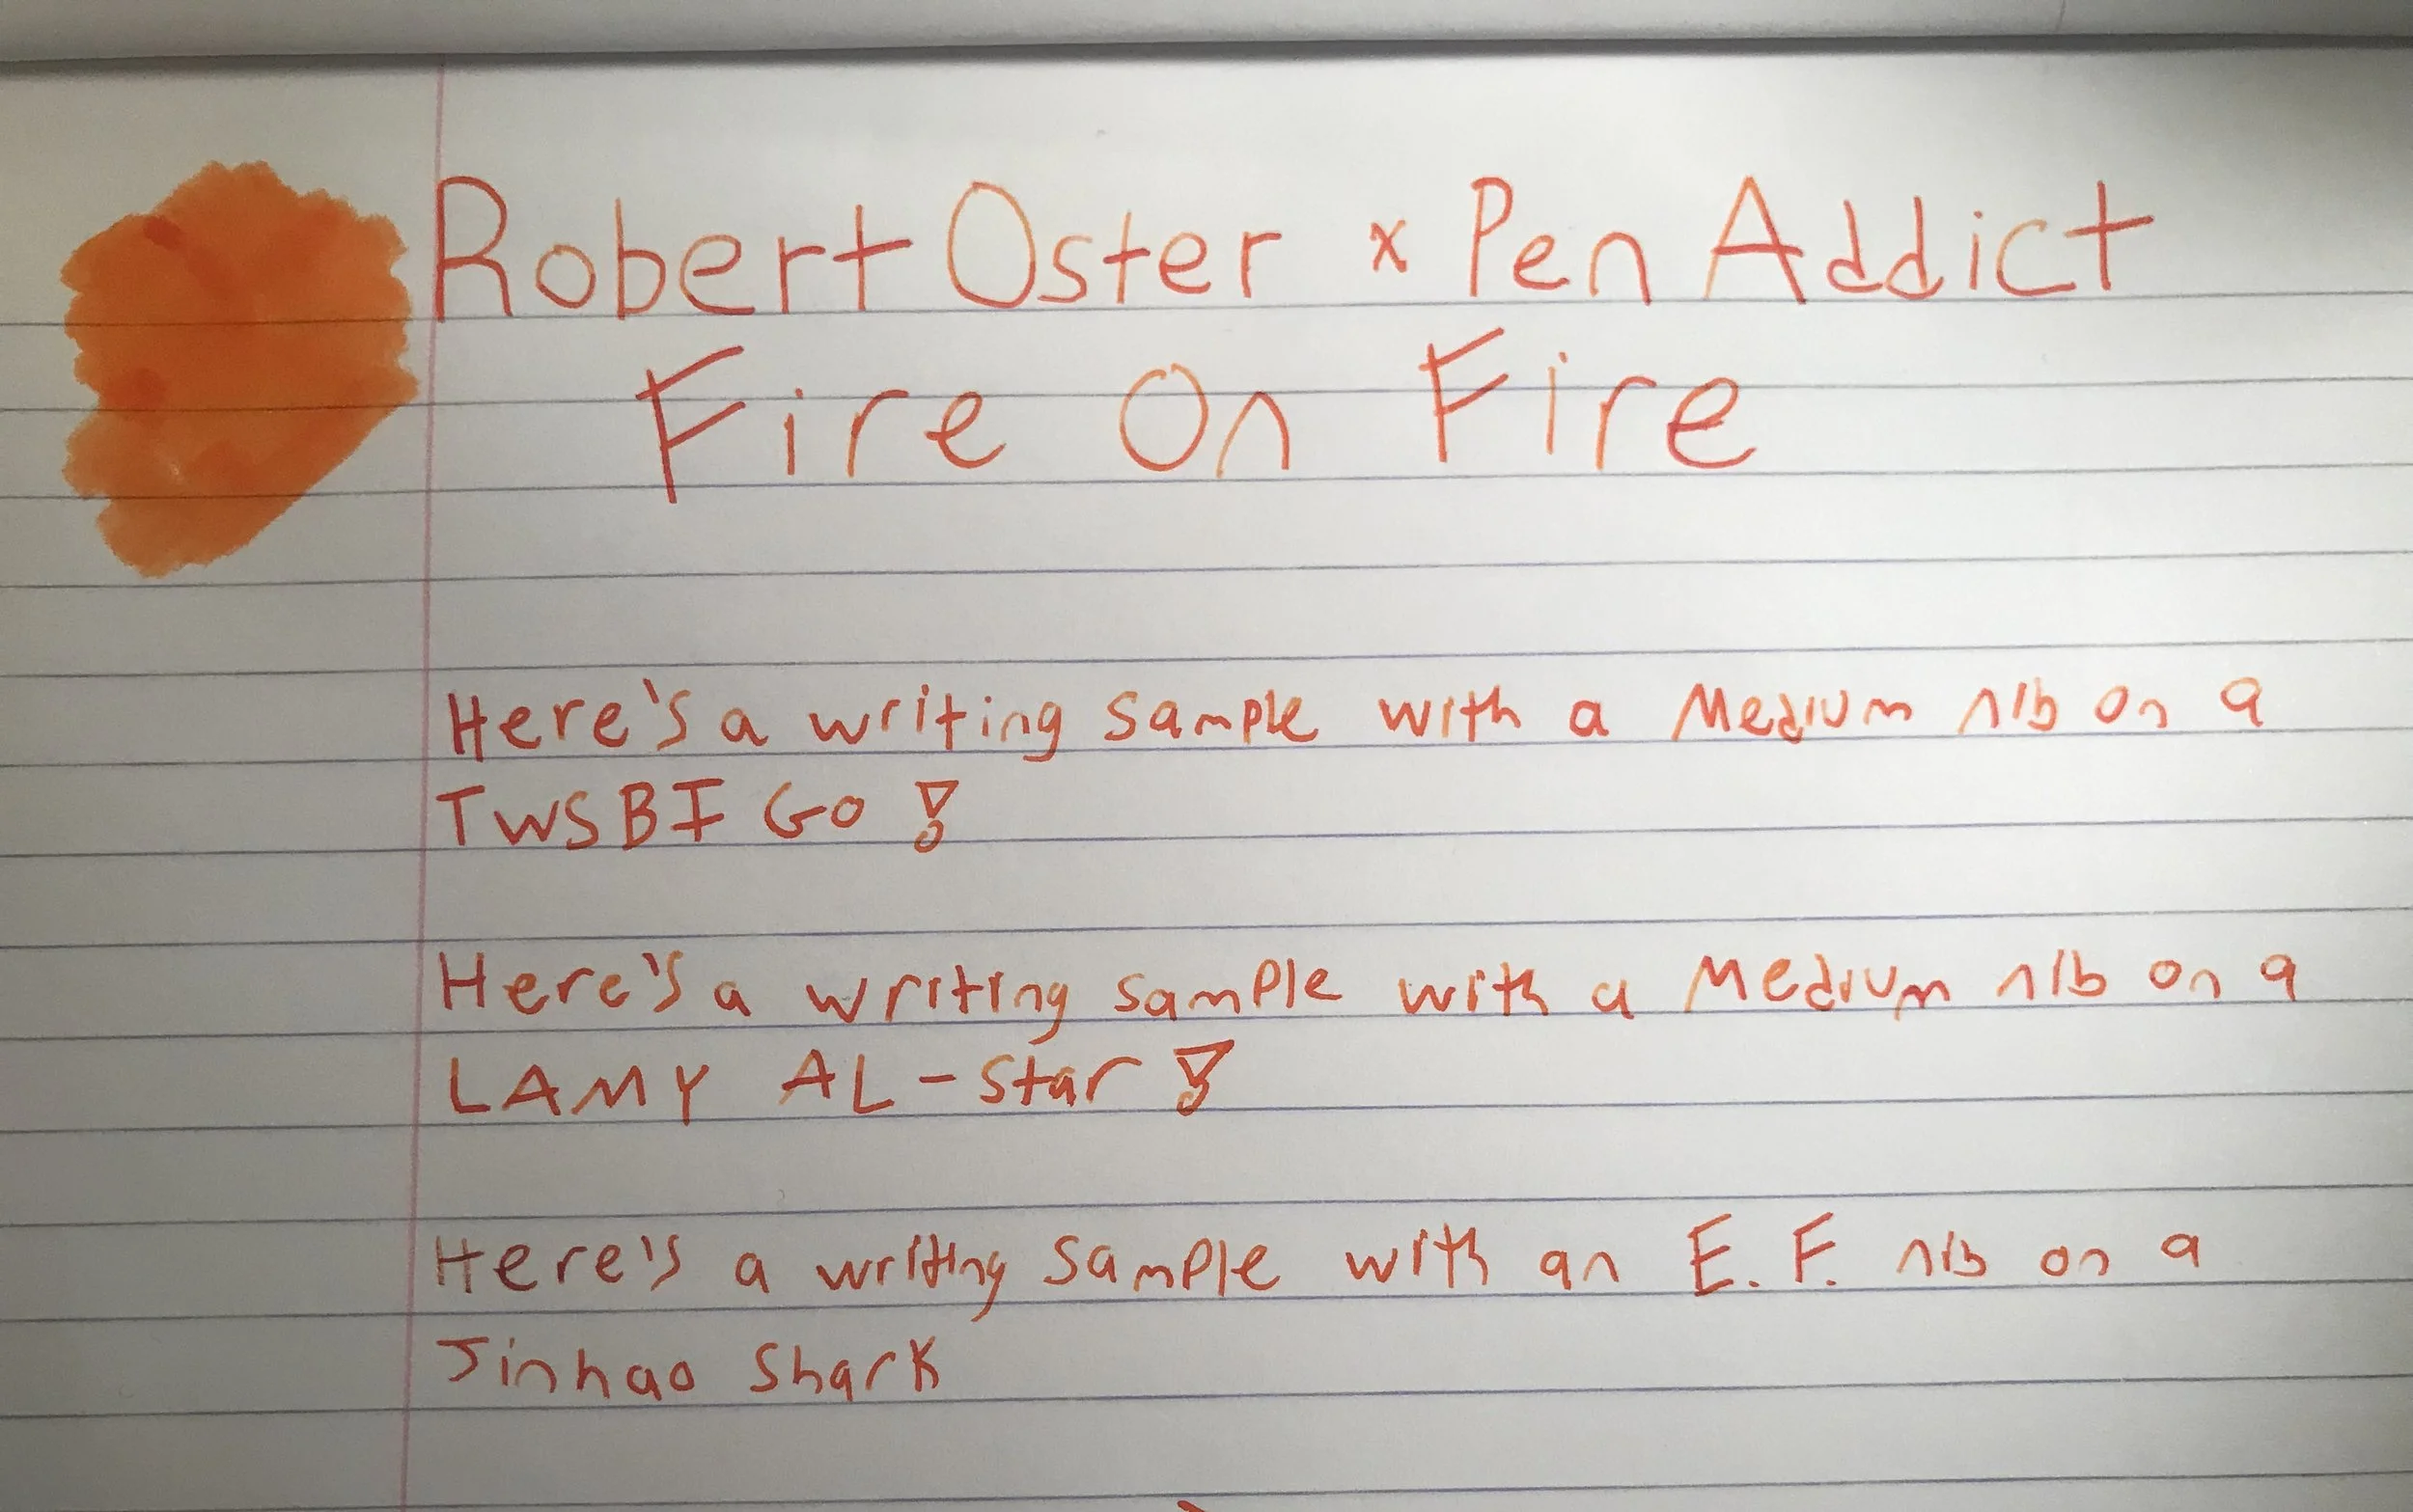 Robert Oster x Pen Addict
Fire On Fire
Here's a writing sample with a Medium nib on a
TWSBI Go!
Here's a writing sample with a Medium nib on a
LAMY AL-Star!
Here's a writing sample with an E.F. nib on a
Jinhao Shark